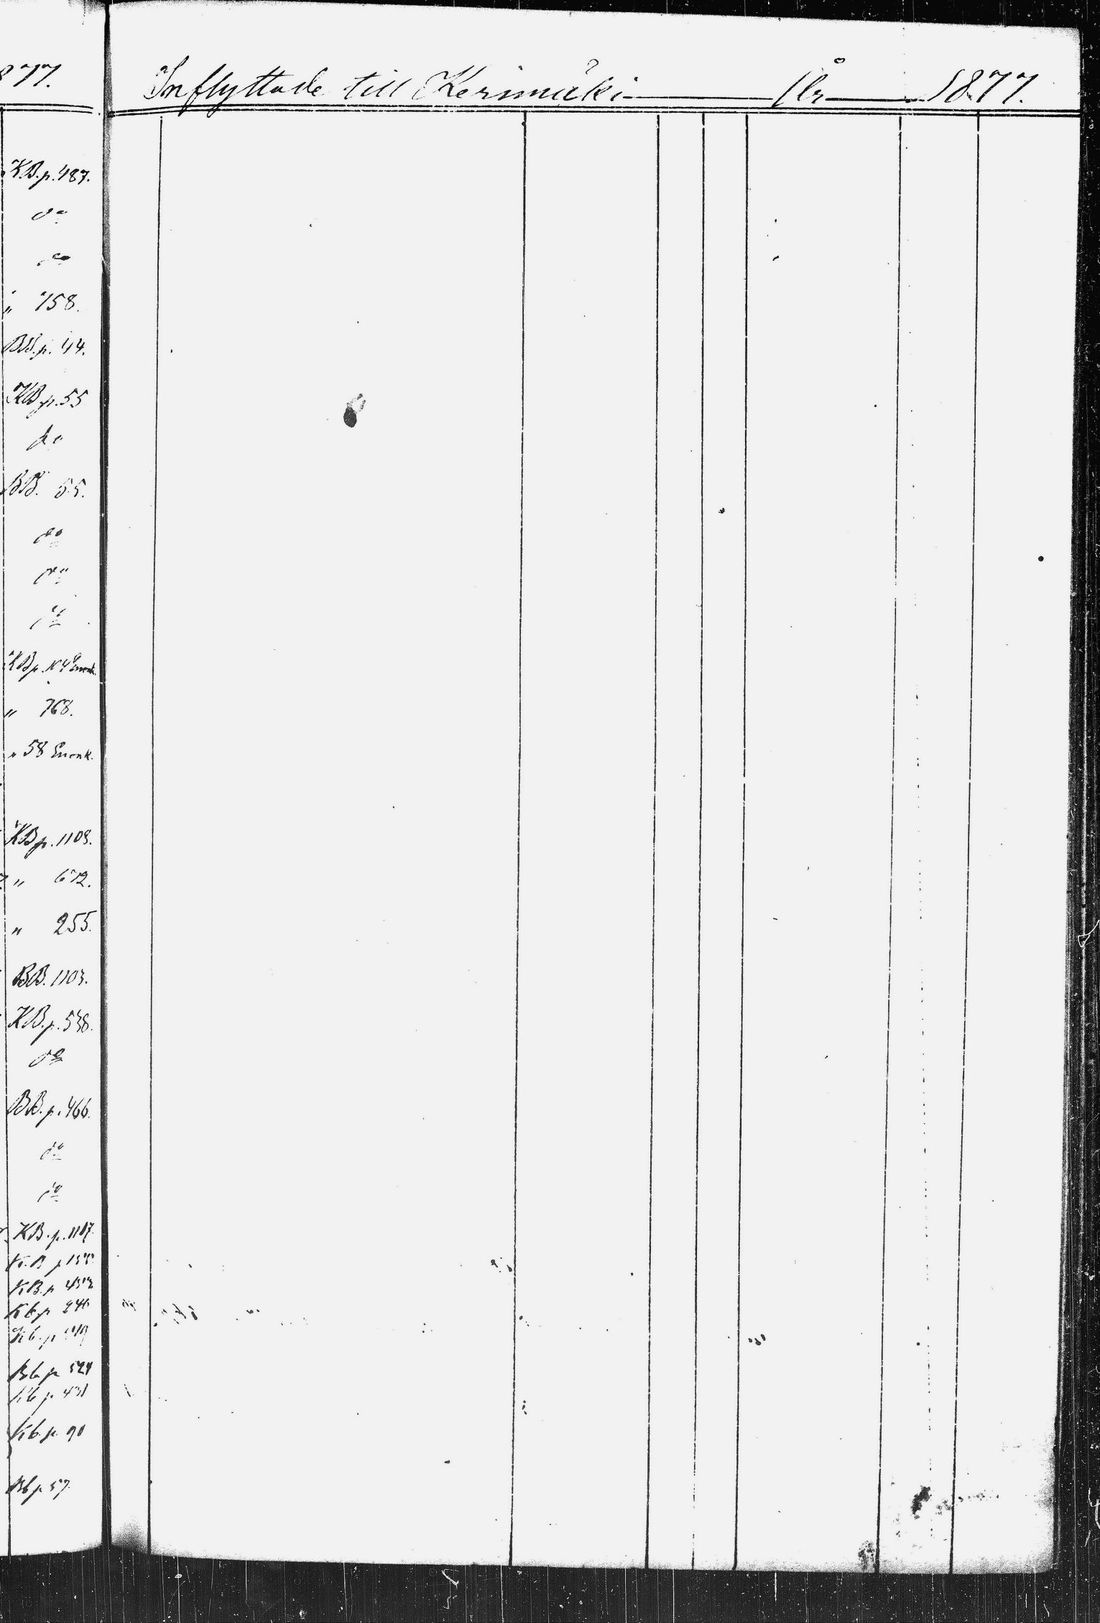 877.
K.B.p. 487.
do
do
" 758.
BB.p. 44.
KB.p. 55
do
BB. 55.
do
do
do
KBp.
" 768.
" 58 Enonk.
KBp. 1103.
" 672.
" 255.
BB. 1103.
KB.p. 538.
do
BB.p. 466.
do
do
KB.p. 1107.
K.B p 155
KB.p 452
Kb.p 240
Kb.p
Bb p 524
Kb p 431
Kb.p 90
Bb p 57
Inflyttade till Kerimäki År 1877.